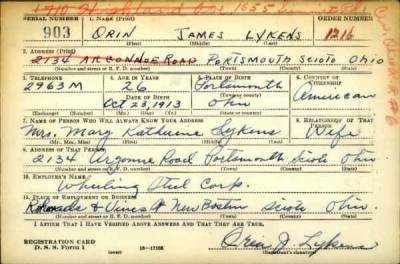 1710 Highland Ave 1655
SERIAL NUMBER 1. NAME (Print) ORDER NUMBER
903 ORIN JAMES LYKENS 1216
(First) (Middle) (Last)
2. ADDRESS (Print)
2134 ARGONNE ROAD PORTSMOUTH SCIOTO OHIO
(Number and street or R. F. D. number) (Town) (County) (State)
3. TELEPHONE 4. AGE IN YEARS 5. PLACE OF BIRTH 6. COUNTRY OF CITIZENSHIP
2963 M 26 Portsmouth
DATE OF BIRTH (Town or county)
Oct 23, 1913 Ohio American
(Exchange) (Number) (Mo.) (Day) (Yr.) (State or country)
7. NAME OF PERSON WHO WILL ALWAYS KNOW YOUR ADDRESS 8. RELATIONSHIP OF THAT PERSON
Mrs. Mary Katherine Lykens Wife
(Mr., Mrs., Miss) (First) (Middle) (Last)
9. ADDRESS OF THAT PERSON
2134 Argonne Road Portsmouth Scioto Ohio
(Number and street or R. F. D. number) (Town) (County) (State)
10. EMPLOYER'S NAME
Wheeling Steel Corp.
11. PLACE OF EMPLOYMENT OR BUSINESS
& Vines St New Boston Scioto Ohio.
(Number and street or R. F. D. number) (Town) (County) (State)
I AFFIRM THAT I HAVE VERIFIED ABOVE ANSWERS AND THAT THEY ARE TRUE.
REGISTRATION CARD
D. S. S. Form 1 16-17105 Orin J. Lykens
(Registrant's signature)